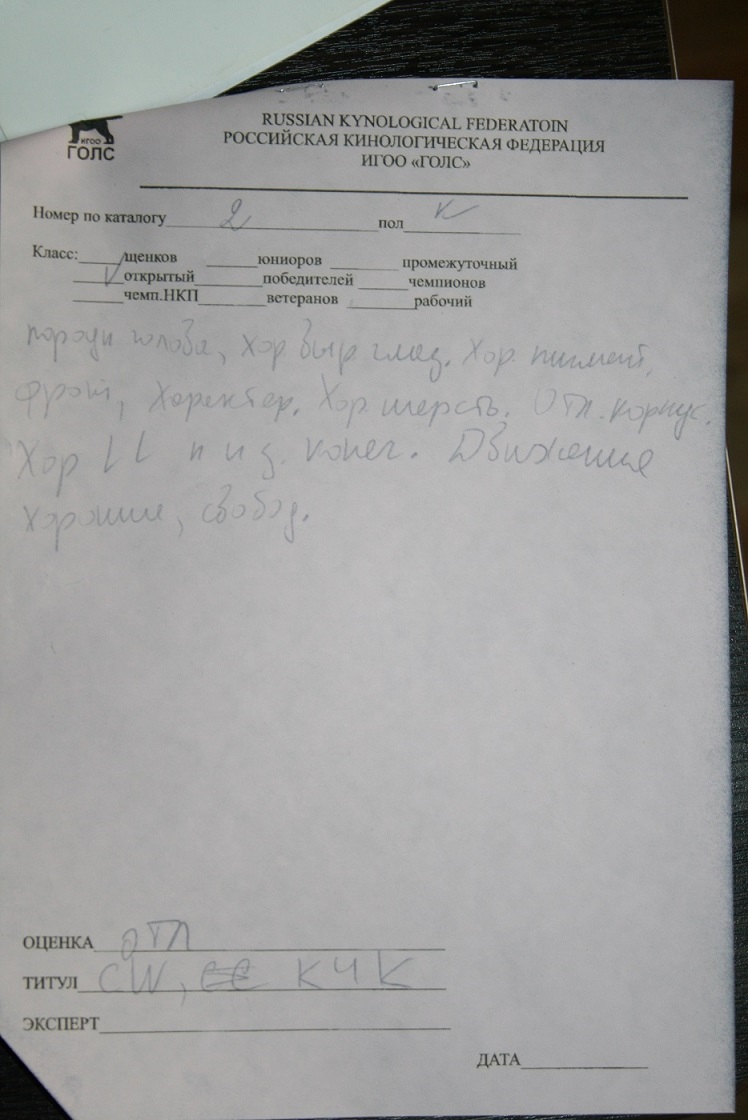 RUSSIAN KYNOLOGICAL FEDERATOIN
РОССИЙСКАЯ КИНОЛОГИЧЕСКАЯ ФЕДЕРАЦИЯ
ИГОО «ГОЛС»
ИГОО
ГОЛС
Номер по каталогу 2 пол К
Класс: щенков юниоров промежуточный
V открытый победителей чемпионов
чемп.НКП ветеранов рабочий
голова, Хор. выр глаз. Хор. пигмент,
фронт, Характер. Хор шерсть. Отл. корпус.
Хор LL п и з. конеч. Движения
хорошие, свобод.
ОЦЕНКА ОТЛ
ТИТУЛ CW, КЧК
ЭКСПЕРТ
ДАТА